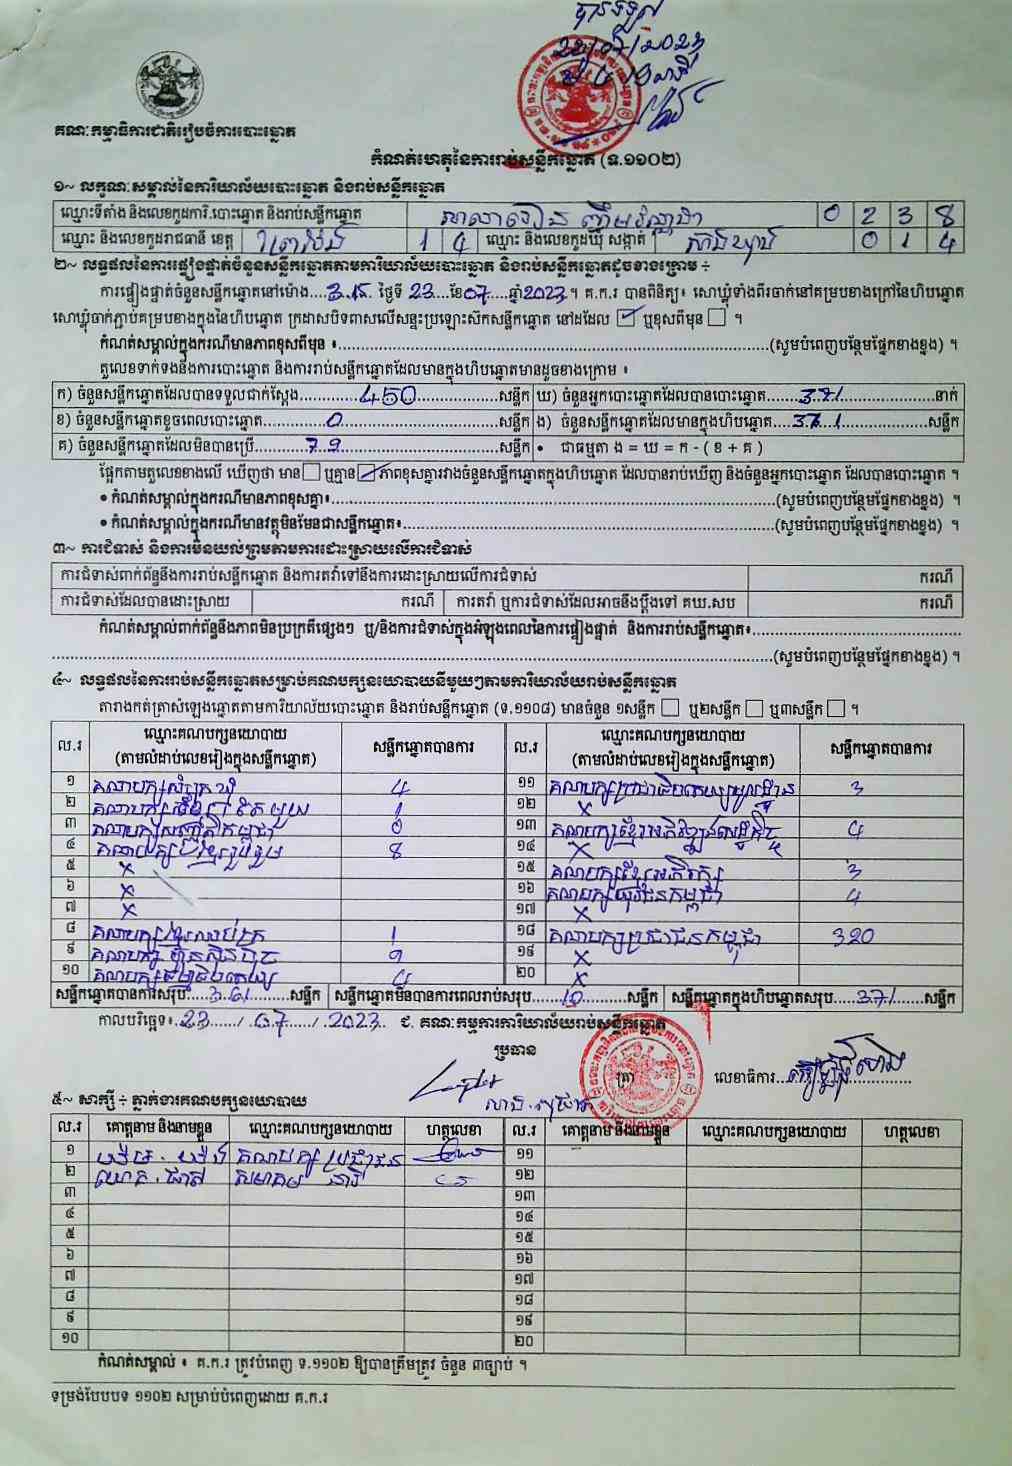 បានទទួល
គណៈកម្មាធិការជាតិរៀបចំការបោះឆ្នោត
កំណត់ហេតុនៃការរាប់សន្លឹកឆ្នោត (ទ.១១០២)
១~ លក្ខណៈសម្គាល់នៃការិយាល័យបោះឆ្នោត និងរាប់សន្លឹកឆ្នោត
ឈ្មោះទីតាំង និងលេខកូដការិ.បោះឆ្នោត និងរាប់សន្លឹកឆ្នោត 0 2 3 8
ឈ្មោះ និងលេខកូដរាជធានី ខេត្ត ព្រៃវែង 1 4 ឈ្មោះ និងលេខកូដឃុំ សង្កាត់ 0 1 4
២~ លទ្ធផលនៃការផ្ទៀងផ្ទាត់ចំនួនសន្លឹកឆ្នោតតាមការិយាល័យបោះឆ្នោត និងរាប់សន្លឹកឆ្នោតដូចខាងក្រោម ÷
ការផ្ទៀងផ្ទាត់ចំនួនសន្លឹកឆ្នោតនៅម៉ោង....3.15. ថ្ងៃទី 23....ខែ07.....ឆ្នាំ2023។ គ.ក.រ បានពិនិត្យ៖ សោឃ្លុំទាំងពីរចាក់នៅគម្របខាងក្រៅនៃហិបឆ្នោត
សោឃ្លុំចាក់ភ្ជាប់គម្របខាងក្នុងនៃហិបឆ្នោត ក្រដាសបិទពាសលើសន្ទះប្រឡោះស៊កសន្លឹកឆ្នោត នៅដដែល ☑ ឬខុសពីមុន ☐ ។
កំណត់សម្គាល់ក្នុងករណីមានភាពខុសពីមុន ៖............(សូមបំពេញបន្ថែមផ្នែកខាងខ្នង) ។
តួលេខទាក់ទងនឹងការបោះឆ្នោត និងការរាប់សន្លឹកឆ្នោតដែលមានក្នុងហិបឆ្នោតមានដូចខាងក្រោម ៖
ក) ចំនួនសន្លឹកឆ្នោតដែលបានទទួលជាក់ស្តែង............450............សន្លឹក ឃ) ចំនួនអ្នកបោះឆ្នោតដែលបានបោះឆ្នោត......371......នាក់
ខ) ចំនួនសន្លឹកឆ្នោតខូចពេលបោះឆ្នោត............0............សន្លឹក ង) ចំនួនសន្លឹកឆ្នោតដែលមានក្នុងហិបឆ្នោត....371......សន្លឹក
គ) ចំនួនសន្លឹកឆ្នោតដែលមិនបានប្រើ............79............សន្លឹក • ជាធម្មតា ង = ឃ = ក - ( ខ + គ )
ផ្អែកតាមតួលេខខាងលើ ឃើញថា មាន ☐ ឬគ្មាន ☑ ភាពខុសគ្នារវាងចំនួនសន្លឹកឆ្នោតក្នុងហិបឆ្នោត ដែលបានរាប់ឃើញ និងចំនួនអ្នកបោះឆ្នោត ដែលបានបោះឆ្នោត ។
• កំណត់សម្គាល់ក្នុងករណីមានភាពខុសគ្នា៖............(សូមបំពេញបន្ថែមផ្នែកខាងខ្នង) ។
• កំណត់សម្គាល់ក្នុងករណីមានវត្ថុមិនមែនជាសន្លឹកឆ្នោត៖............(សូមបំពេញបន្ថែមផ្នែកខាងខ្នង) ។
៣~ ការជំទាស់ និងការមិនយល់ព្រមតាមការដោះស្រាយលើការជំទាស់
ការជំទាស់ពាក់ព័ន្ធនឹងការរាប់សន្លឹកឆ្នោត និងការតវ៉ាទៅនឹងការដោះស្រាយលើការជំទាស់ ករណី
ការជំទាស់ដែលបានដោះស្រាយ ករណី ការតវ៉ា ឬការជំទាស់ដែលអាចនឹងប្តឹងទៅ គឃ.សប ករណី
កំណត់សម្គាល់ពាក់ព័ន្ធនឹងភាពមិនប្រក្រតីផ្សេងៗ ឬ/និងការជំទាស់ក្នុងអំឡុងពេលនៃការផ្ទៀងផ្ទាត់ និងការរាប់សន្លឹកឆ្នោត៖............
............(សូមបំពេញបន្ថែមផ្នែកខាងខ្នង) ។
៤~ លទ្ធផលនៃការរាប់សន្លឹកឆ្នោតសម្រាប់គណបក្សនយោបាយនីមួយៗតាមការិយាល័យរាប់សន្លឹកឆ្នោត
តារាងកត់ត្រាសំឡេងឆ្នោតតាមការិយាល័យបោះឆ្នោត និងរាប់សន្លឹកឆ្នោត (ទ.១១០៨) មានចំនួន ១សន្លឹក ☐ ឬ២សន្លឹក ☐ ឬ៣សន្លឹក ☐ ។
ល.រ ឈ្មោះគណបក្សនយោបាយ (តាមលំដាប់លេខរៀងក្នុងសន្លឹកឆ្នោត) សន្លឹកឆ្នោតបានការ ល.រ ឈ្មោះគណបក្សនយោបាយ (តាមលំដាប់លេខរៀងក្នុងសន្លឹកឆ្នោត) សន្លឹកឆ្នោតបានការ
១ 4 ១១ គណបក្សប្រជាធិបតេយ្យមូលដ្ឋាន 3
២ 1 ១២ x
៣ 0 ១៣ គណបក្សខ្មែរអភិវឌ្ឍន៍សេដ្ឋកិច្ច 4
៤ គណបក្សខ្មែររួបរួម 8 ១៤ x
៥ x ១៥ គណបក្សខ្មែរអភិរក្ស 3
៦ x ១៦ គណបក្សយុវជនកម្ពុជា 4
៧ x ១៧ x
៨ 1 ១៨ គណបក្សប្រជាជនកម្ពុជា 320
៩ គណបក្សហ្វ៊ុនស៊ិនប៉ិច 9 ១៩ x
១០ គណបក្សធម្មាធិបតេយ្យ 4 ២០ x
សន្លឹកឆ្នោតបានការសរុប.....361.....សន្លឹក សន្លឹកឆ្នោតមិនបានការពេលរាប់សរុប.....10.....សន្លឹក សន្លឹកឆ្នោតក្នុងហិបឆ្នោតសរុប.....371.....សន្លឹក
កាលបរិច្ឆេទ៖..23...../..07...../..2023.. ជ. គណៈកម្មការការិយាល័យរាប់សន្លឹកឆ្នោត
ប្រធាន
ត្រា លេខាធិការ............
៥~ សាក្សី ÷ ភ្នាក់ងារគណបក្សនយោបាយ
ល.រ គោត្តនាម និងនាមខ្លួន ឈ្មោះគណបក្សនយោបាយ ហត្ថលេខា ល.រ គោត្តនាម និងនាមខ្លួន ឈ្មោះគណបក្សនយោបាយ ហត្ថលេខា
១ គណបក្ស ប្រជាជន ១១
២ សមាគម នារី ១២
៣ ១៣
៤ ១៤
៥ ១៥
៦ ១៦
៧ ១៧
៨ ១៨
៩ ១៩
១០ ២០
កំណត់សម្គាល់ ៖ គ.ក.រ ត្រូវបំពេញ ទ.១១០២ ឱ្យបានត្រឹមត្រូវ ចំនួន ៣ច្បាប់ ។
ទម្រង់បែបបទ ១១០២ សម្រាប់បំពេញដោយ គ.ក.រ